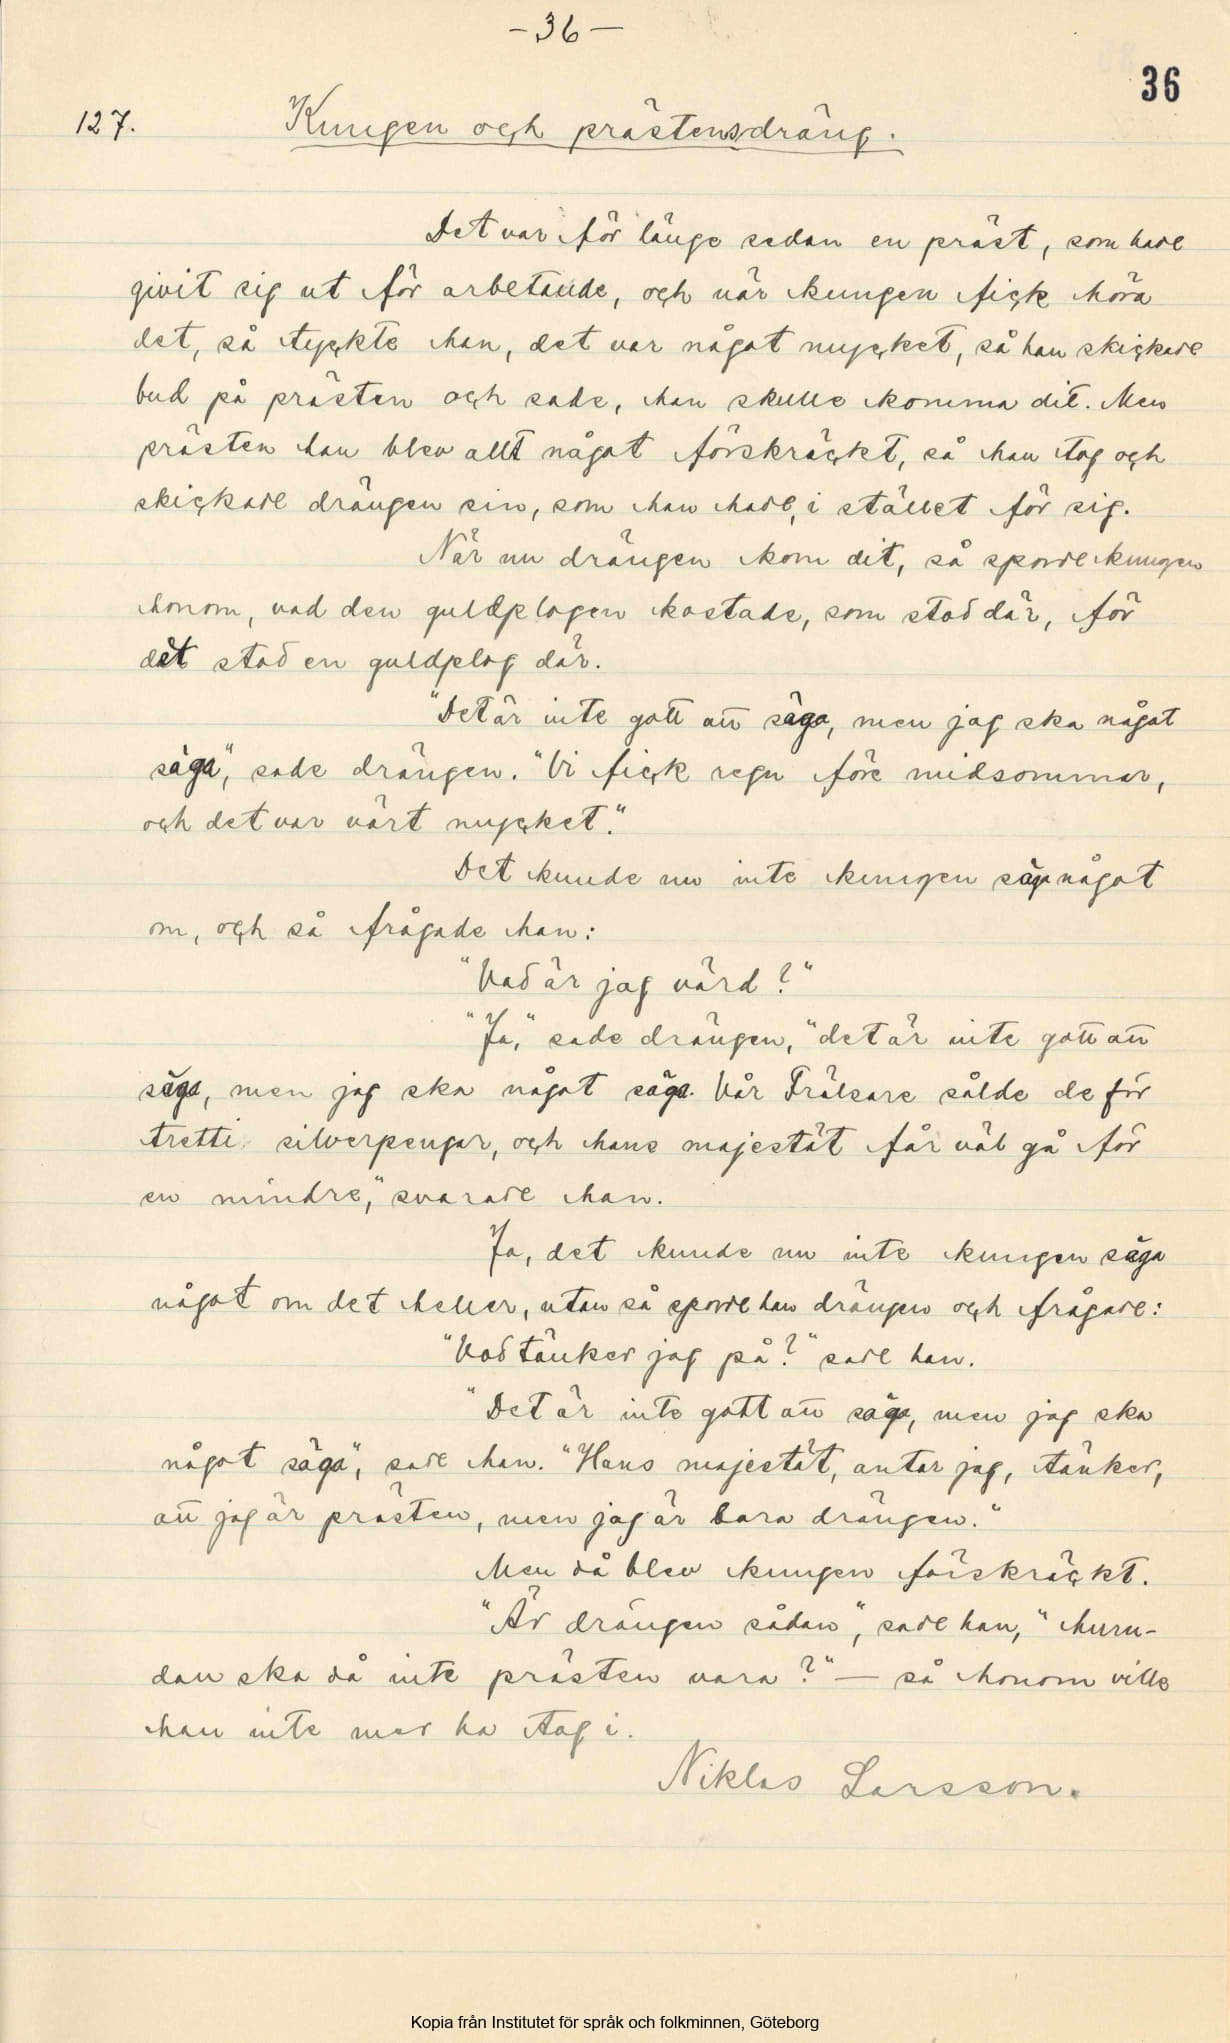 -36-
36
127. Kungen och prästens dräng.
Det var för länge sedan en präst, som hade
givit sig ut för arbetande, och när kungen fick höra
det, så tyckte han, det var något mycket, så han skickade
bud på prästen och sade, han skulle komma dit. Men
prästen han blev allt något förskräcket, så han tog och
skickade drängen sin, som han hade, i stället för sig.
När nu drängen kom dit, så sporde kungen
honom, vad den guldplogen kostade, som stod där, för
det stod en guldplog där.
"Det är inte gott att säga, men jag ska något
säga", sade drängen. "Vi fick regn före midsommar,
och det var värt mycket."
Det kunde nu inte kungen säga något
om, och så frågade han:
"Vad är jag värd?"
"Ja," sade drängen, "det är inte gott att
säga, men jag ska något säga. Vår Frälsare sålde de för
tretti silverpengar, och hans majestät får väl gå för
en mindre," svarade han.
Ja, det kunde nu inte kungen säga
något om det heller, utan så sporde han drängen och frågade:
"Vad tänker jag på?" sade han.
"Det är inte gott att säga, men jag ska
något säga", sade han. "Hans majestät, antar jag, tänker,
att jag är prästen, men jag är bara drängen."
Men då blev kungen förskräckt.
"Är drängen sådan", sade han, "huru-
dan ska då inte prästen vara?" — så honom ville
han inte mer ha tag i.
Niklas Larsson.
Kopia från Institutet för språk och folkminnen, Göteborg